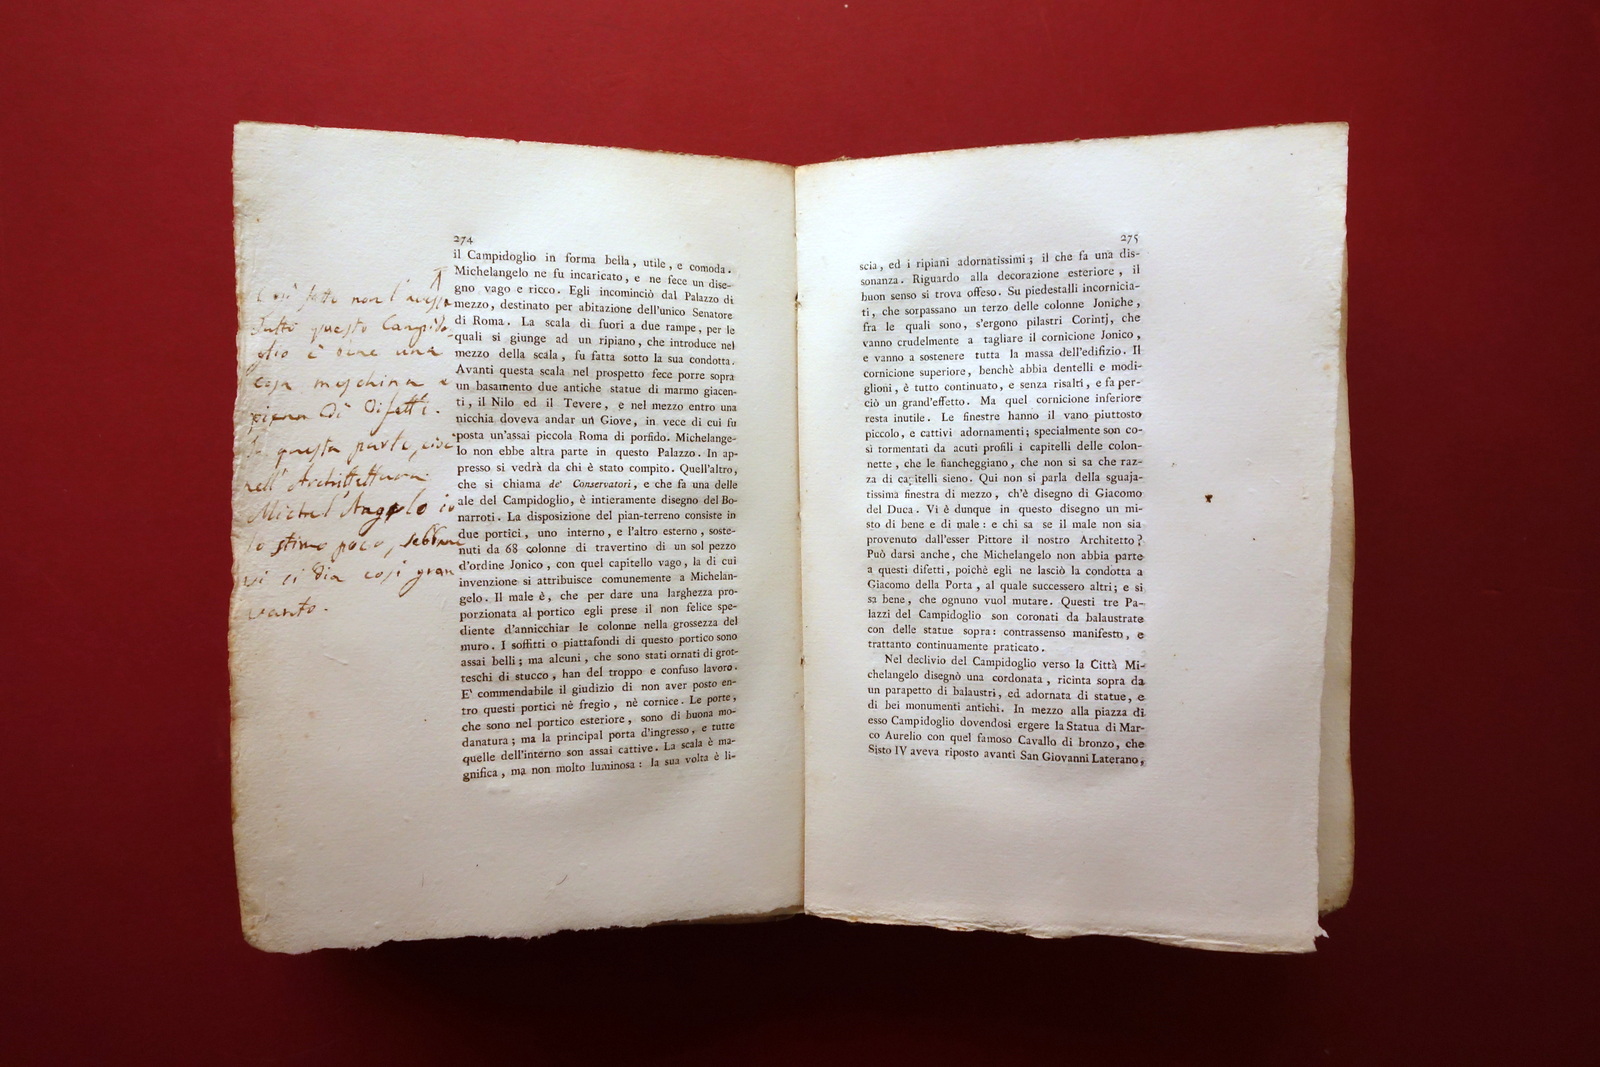 274
il Campidoglio in forma bella, utile, e comoda.
Michelangelo ne fu incaricato, e ne fece un dise-
gno vago e ricco. Egli incominciò dal Palazzo di
mezzo, destinato per abitazione dell'unico Senatore
di Roma. La scala di fuori a due rampe, per le
quali si giunge ad un ripiano, che introduce nel
mezzo della scala, fu fatta sotto la sua condotta.
Avanti questa scala nel prospetto fece porre sopra
un basamento due antiche statue di marmo giacen-
ti, il Nilo ed il Tevere, e nel mezzo entro una
nicchia doveva andar un Giove, in vece di cui fu
posta un'assai piccola Roma di porfido. Michelange-
lo non ebbe altra parte in questo Palazzo. In ap-
presso si vedrà da chi è stato compito. Quell'altro,
che si chiama de' Conservatori, e che fa una delle
ale del Campidoglio, è intieramente disegno del Bo-
narroti. La disposizione del pian-terreno consiste in
due portici, uno interno, e l'altro esterno, soste-
nuti da 68 colonne di travertino di un sol pezzo
d'ordine Jonico, con quel capitello vago, la di cui
invenzione si attribuisce comunemente a Michelan-
gelo. Il male è, che per dare una larghezza pro-
porzionata al portico egli prese il non felice spe-
diente d'annicchiar le colonne nella grossezza del
muro. I soffitti o piattafondi di questo portico sono
assai belli; ma alcuni, che sono stati ornati di grot-
teschi di stucco, han del troppo e confuso lavoro.
E' commendabile il giudizio di non aver posto en-
tro questi portici nè fregio, nè cornice. Le porte,
che sono nel portico esteriore, sono di buona mo-
danatura; ma la principal porta d'ingresso, e tutte
quelle dell'interno son assai cattive. La scala è ma-
gnifica, ma non molto luminosa: la sua volta è li-
Così fatto non l'avesse
Tutto questo Campido-
glio è bene una
cosa meschina e
piena di difetti.
In questa parte, cioè
nell'Architettura
Michel'Angelo io
lo stimo poco, sebbene
vi si dia così gran
vanto.
275
scia, ed i ripiani adornatissimi; il che fa una dis-
sonanza. Riguardo alla decorazione esteriore, il
buon senso si trova offeso. Su piedestalli incornicia-
ti, che sorpassano un terzo delle colonne Joniche,
fra le quali sono, s'ergono pilastri Corintj, che
vanno crudelmente a tagliare il cornicione Jonico,
e vanno a sostenere tutta la massa dell'edifizio. Il
cornicione superiore, benchè abbia dentelli e modi-
glioni, è tutto continuato, e senza risalti, e fa per-
ciò un grand'effetto. Ma quel cornicione inferiore
resta inutile. Le finestre hanno il vano piuttosto
piccolo, e cattivi adornamenti; specialmente son co-
sì tormentati da acuti profili i capitelli delle colon-
nette, che le fiancheggiano, che non si sa che raz-
za di capitelli sieno. Qui non si parla della sguaja-
tissima finestra di mezzo, ch'è disegno di Giacomo
del Duca. Vi è dunque in questo disegno un mi-
sto di bene e di male: e chi sa se il male non sia
provenuto dall'esser Pittore il nostro Architetto?
Può darsi anche, che Michelangelo non abbia parte
a questi difetti, poichè egli ne lasciò la condotta a
Giacomo della Porta, al quale successero altri; e si
sa bene, che ognuno vuol mutare. Questi tre Pa-
lazzi del Campidoglio son coronati da balaustrate
con delle statue sopra: contrassenso manifesto, e
trattanto continuamente praticato.
Nel declivio del Campidoglio verso la Città Mi-
chelangelo disegnò una cordonata, ricinta sopra da
un parapetto di balaustri, ed adornata di statue, e
di bei monumenti antichi. In mezzo alla piazza di
esso Campidoglio dovendosi ergere la Statua di Mar-
co Aurelio con quel famoso Cavallo di bronzo, che
Sisto IV aveva riposto avanti San Giovanni Laterano,